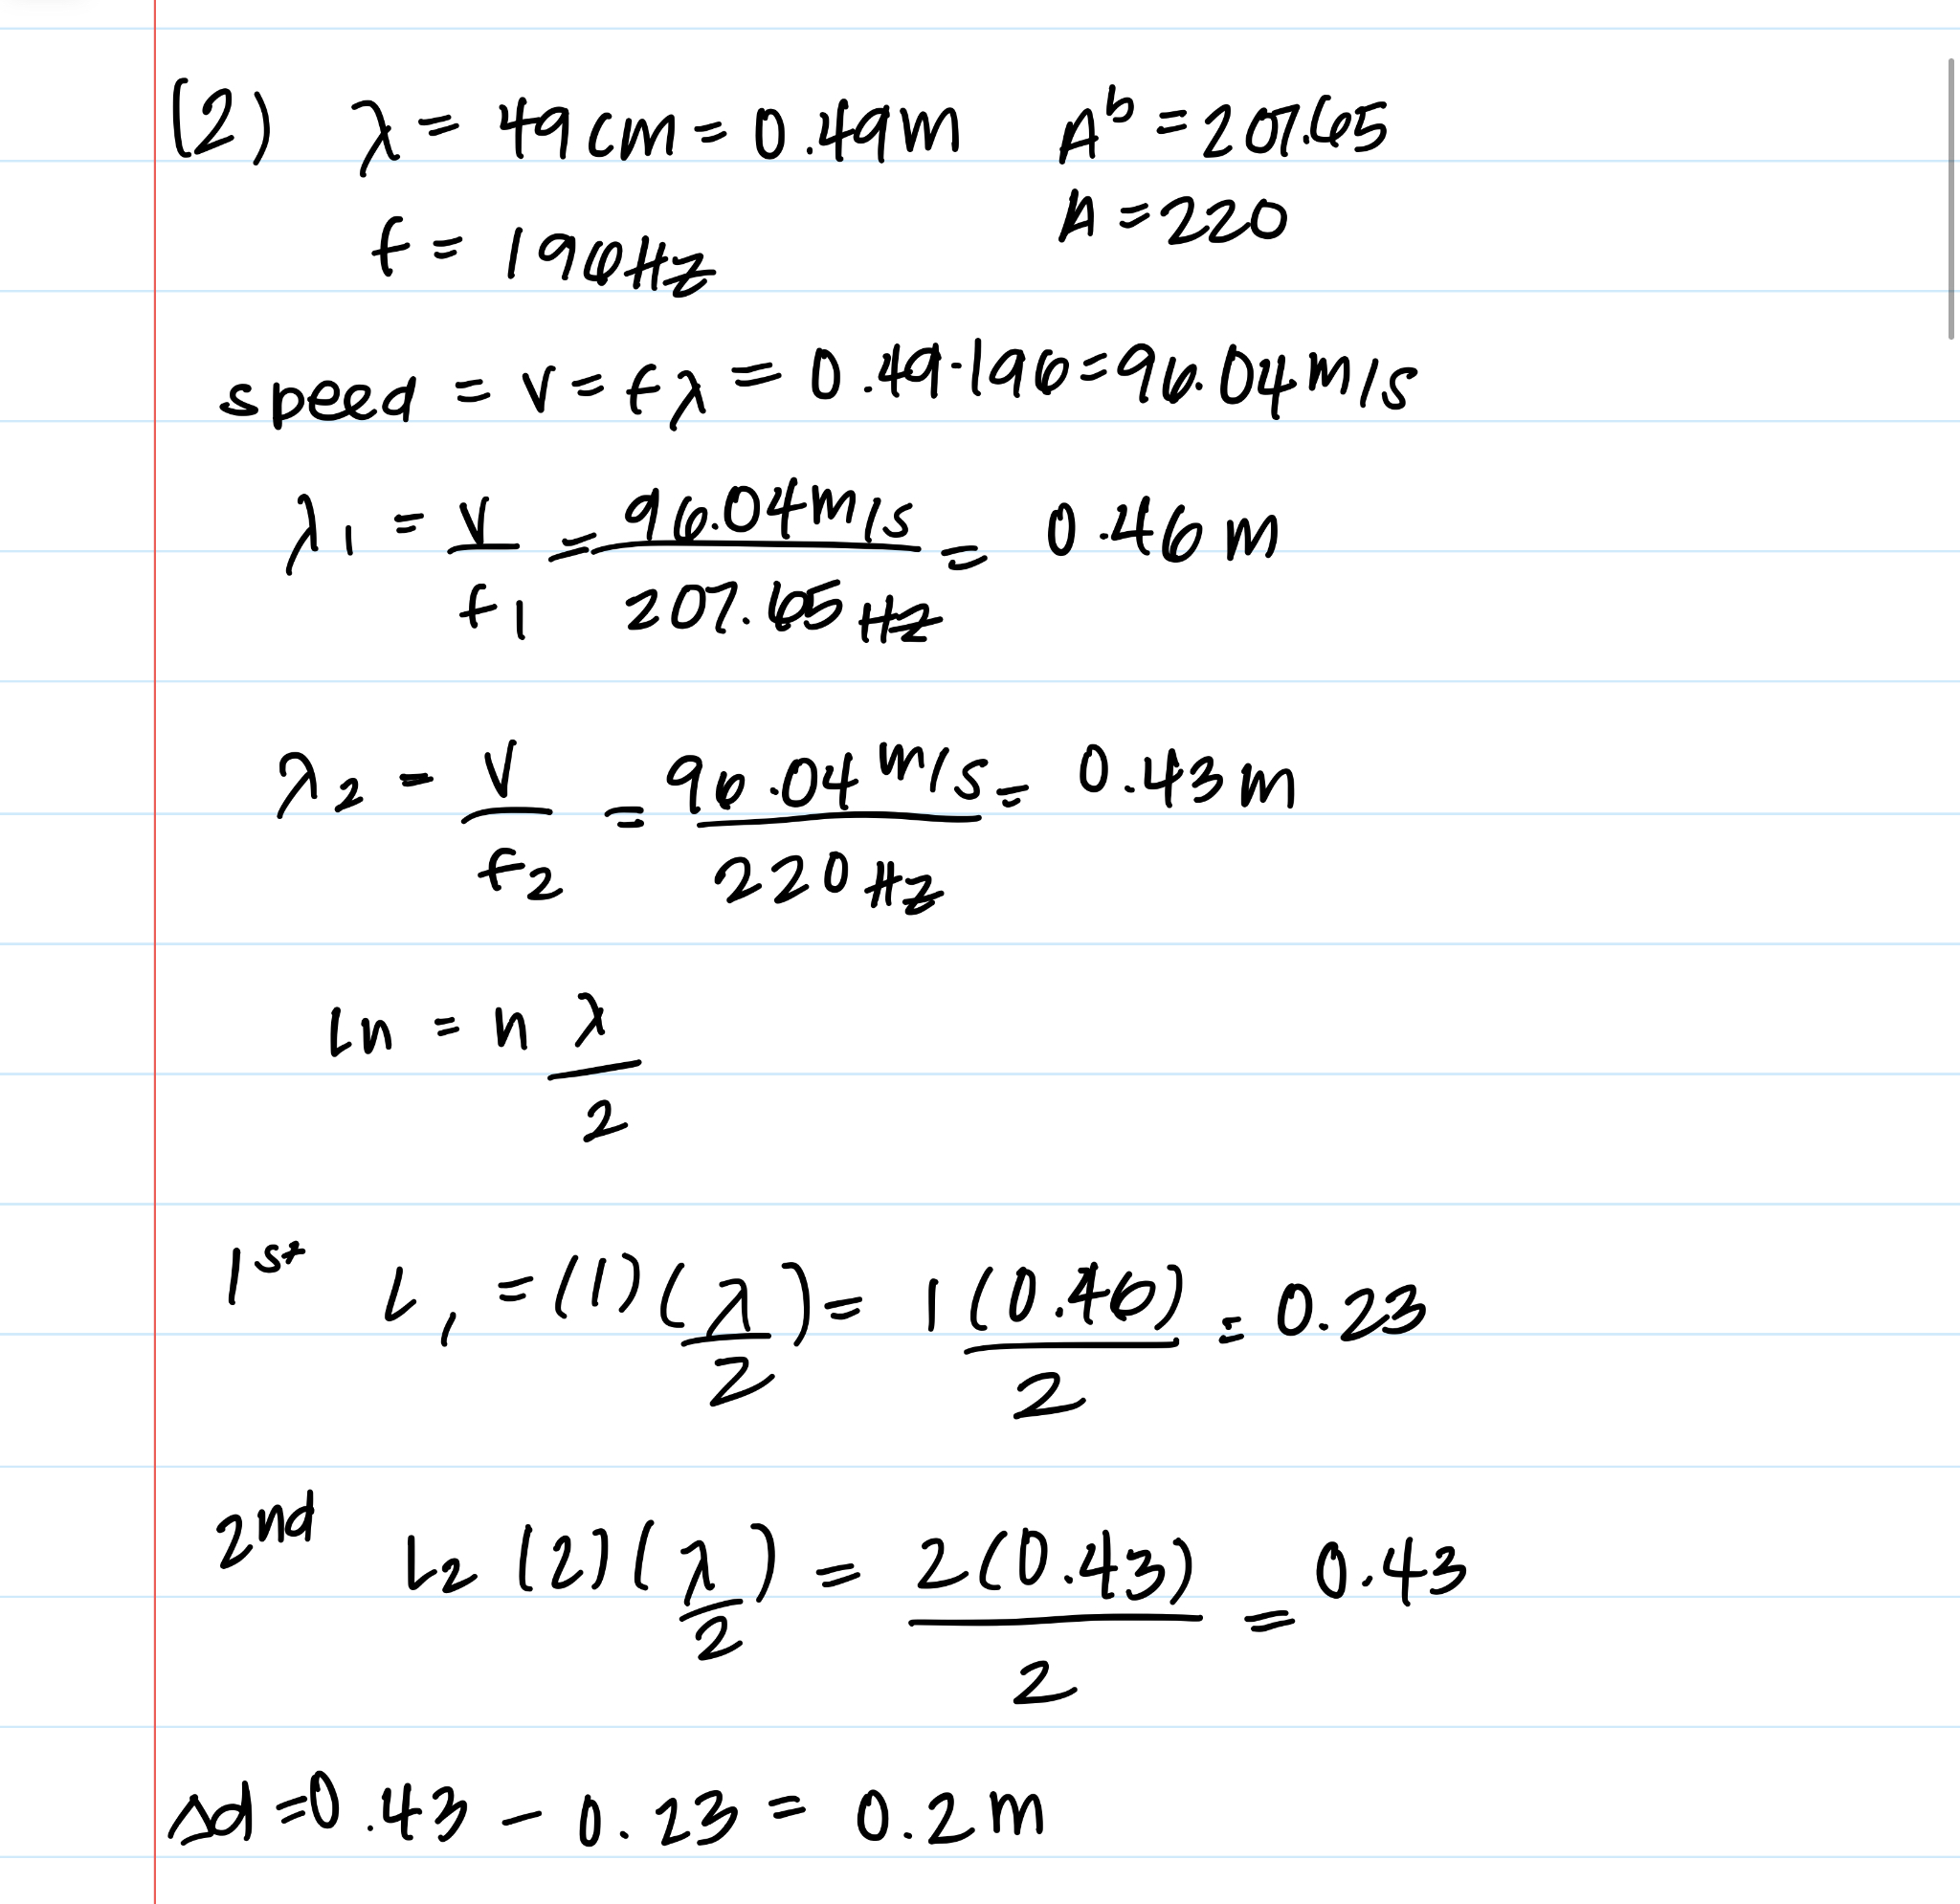 (2) λ = 49 cm = 0.49 m A♭ = 207.65
f = 196 Hz A = 220
speed = v = fλ = 0.49 · 196 = 96.04 m/s
λ1 = v/f1 = 96.04 m/s / 207.65 Hz = 0.46 m
λ2 = v/f2 = 96.04 m/s / 220 Hz = 0.43 m
Ln = n λ/2
1st L1 = (1)(λ/2) = 1(0.46)/2 = 0.23
2nd L2 (2)(λ/2) = 2(0.43)/2 = 0.43
Δd = 0.43 - 0.23 = 0.2 m